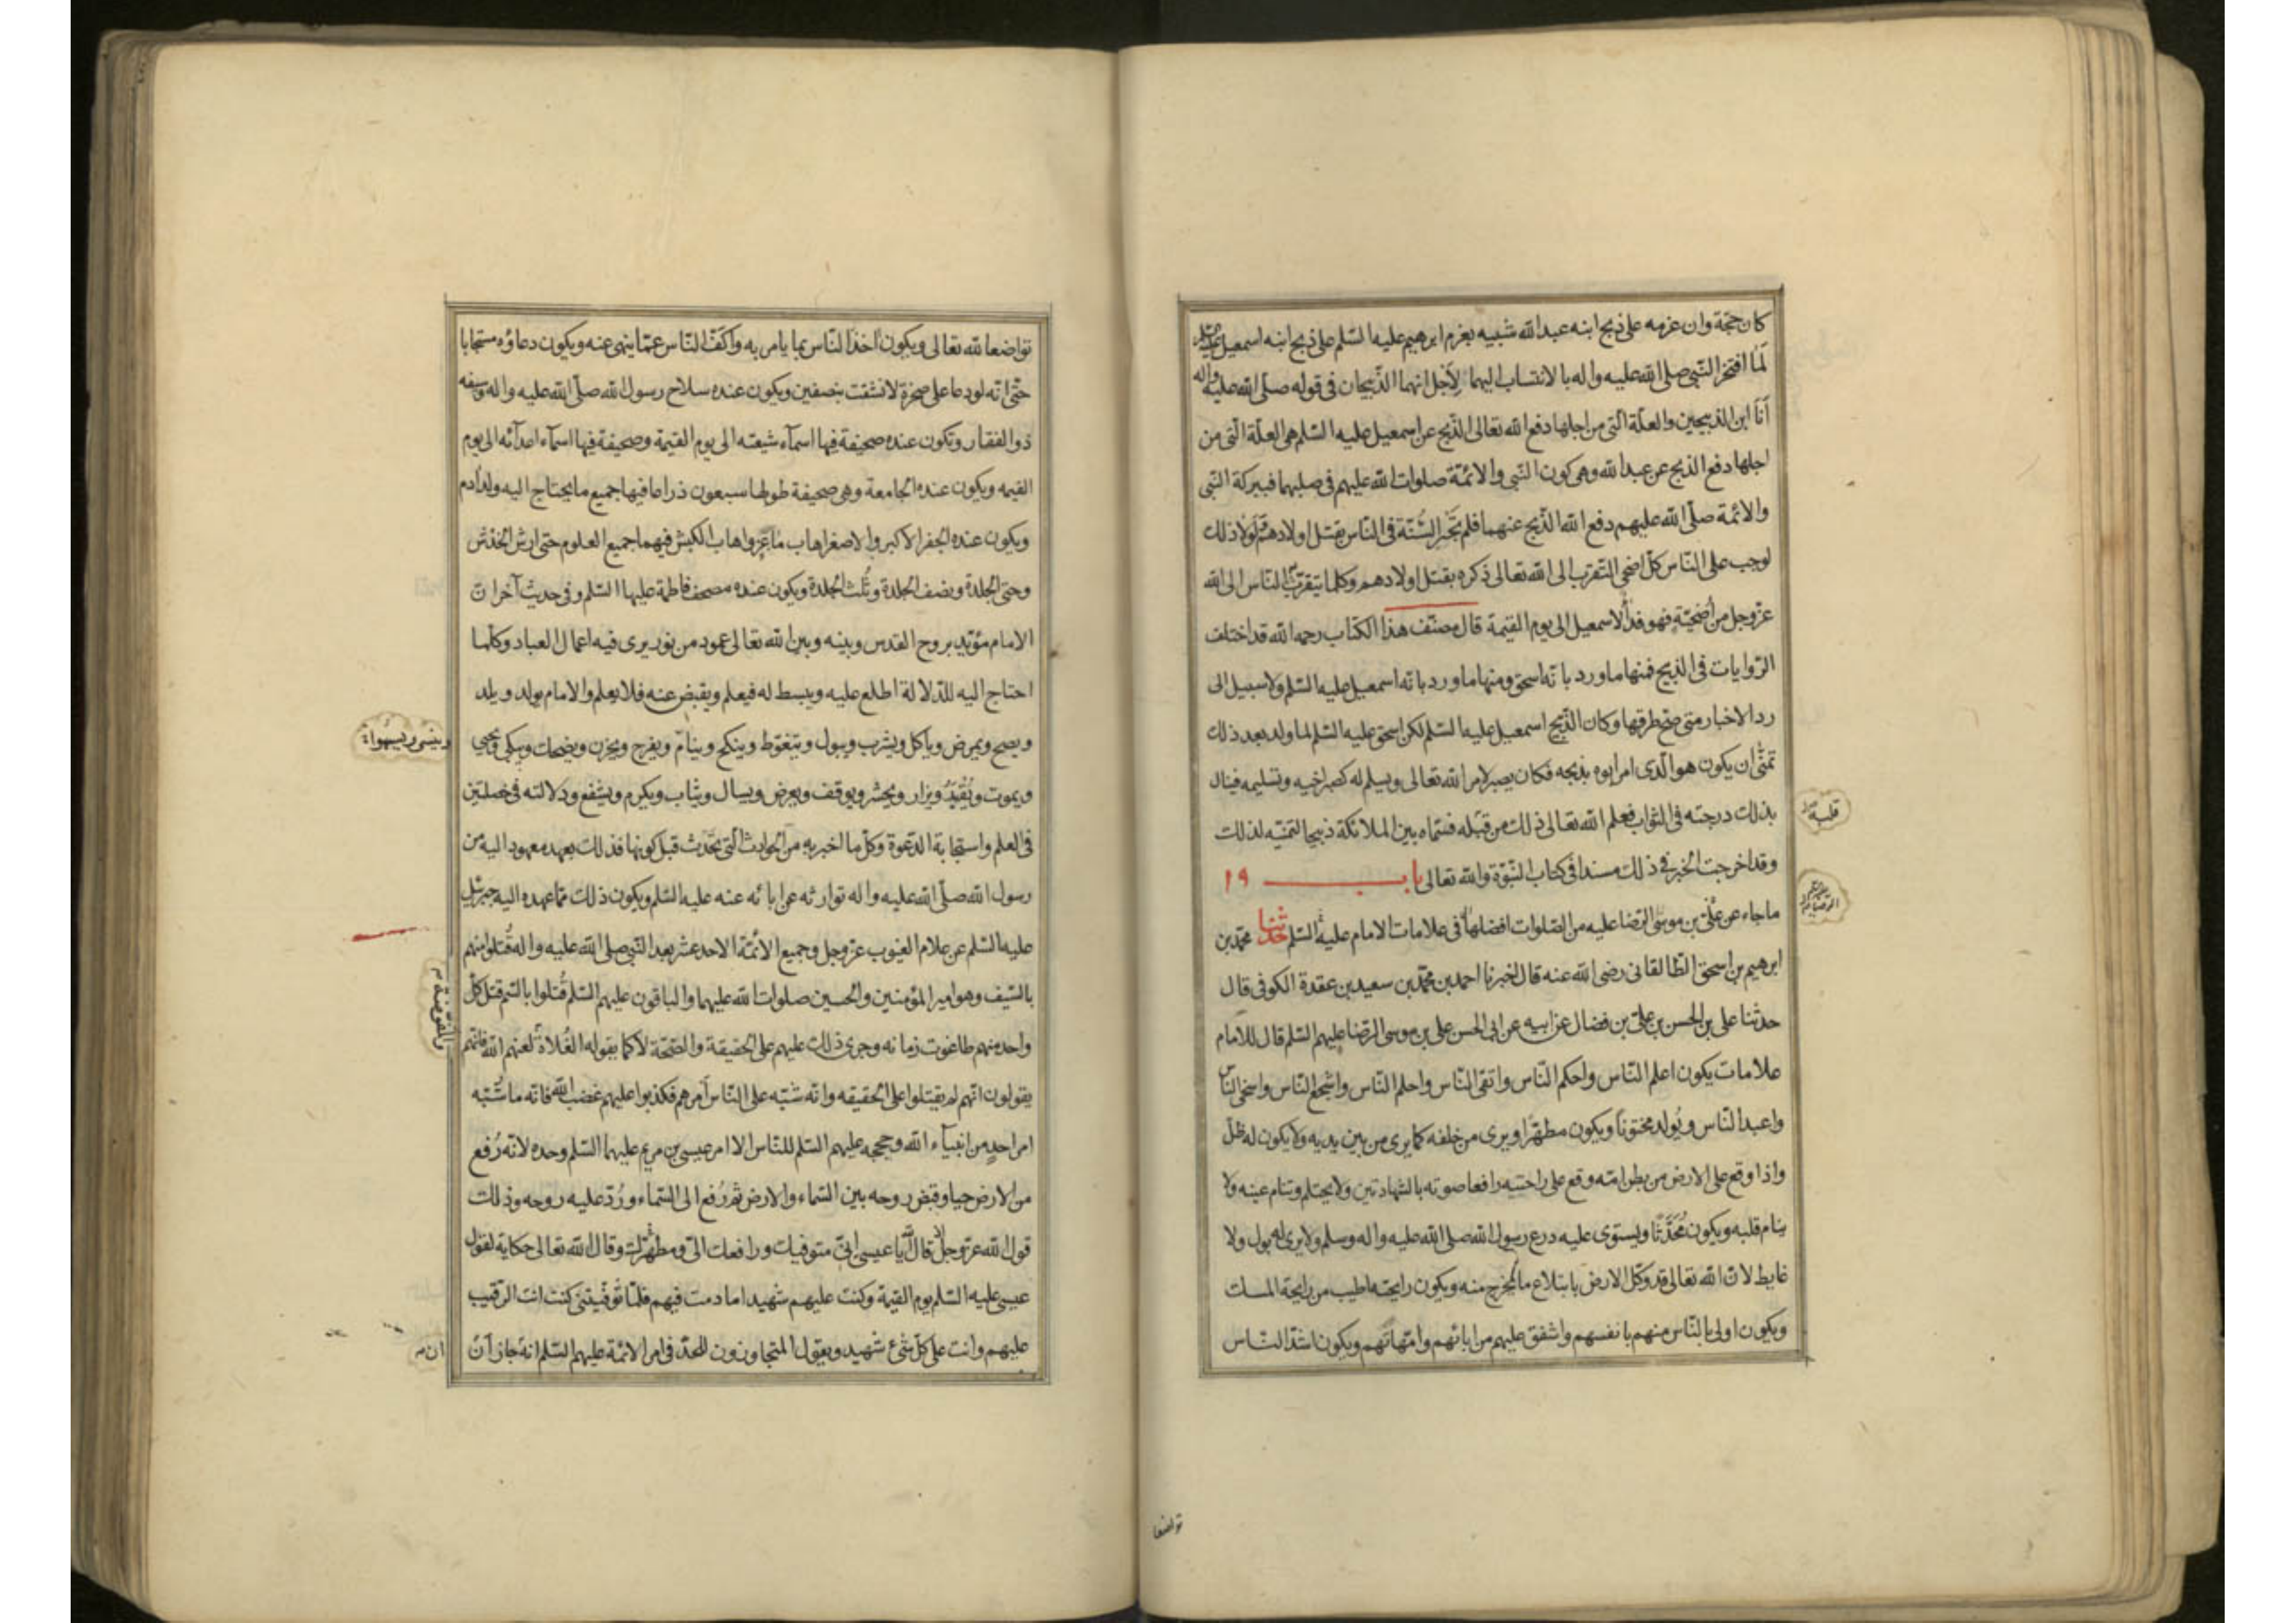 كان حجة وان عزمه على ذبح ابنه عبد الله شبيه بعزم ابرهيم عليه السلم على ذبح ابنه اسمعيل
لما افتخر النبي صلى الله عليه واله بالانتساب اليهما لاجل انهما الذبيحان في قوله صلى الله عليه واله
أنا ابن الذبيحين والعلة التي من اجلها دفع الله تعالى الذبح عن اسمعيل عليه السلم هي العلة التي من
اجلها دفع الذبح عن عبد الله وهي كون النبي والائمة صلوات الله عليهم في صلبهما فببركة النبي
والائمة صلى الله عليهم دفع الله الذبح عنهما فلم تجر السنة في الناس بقتل اولادهم ولولا ذلك
لوجب على الناس كل اضحى التقرب الى الله تعالى ذكره بقتل اولادهم وكلما يتقرب الناس الى الله
عز وجل من أضحية فهو فدأ لاسمعيل الى يوم القيمة قال مصنف هذا الكتاب رحمه الله قد اختلف
الروايات في الذبيح فمنها ما ورد بانه اسحق ومنها ما ورد بانه اسمعيل عليه السلم ولا سبيل الى
رد الاخبار متى صح طرقها وكان الذبيح اسمعيل عليه السلم لكن اسحق عليه السلم لما ولد بعد ذلك
تمنى ان يكون هو الذي امر ابوه بذبحه فكان يصبر لامر الله تعالى ويسلم له كصبر اخيه وتسليمه فينال
بذلك درجته في الثواب فعلم الله تعالى ذلك من قبله فسماه بين الملائكة ذبيحا لتمنيه لذلك
قلبه
وقد اخرجت الخبر في ذلك مسندا في كتاب النبوة والله تعالى باب ١٩
ما جاء عن علي بن موسى الرضا عليه من الصلوات افضلها في علامات الامام عليه السلم حدثنا محمد بن
ابرهيم بن اسحق الطالقاني رضي الله عنه قال اخبرنا احمد بن محمد بن سعيد بن عقدة الكوفي قال
حدثنا علي بن الحسن بن علي بن فضال عن ابيه عن ابي الحسن علي بن موسى الرضا عليهم السلم قال للامام
علامات يكون اعلم الناس واحكم الناس واتقى الناس واحلم الناس واشجع الناس واسخى الناس
واعبد الناس ويولد مختونا ويكون مطهرا ويرى من خلفه كما يرى من بين يديه ولا يكون له ظل
واذا وقع على الارض من بطن امه وقع على راحتيه رافعا صوته بالشهادتين ولا يحتلم وتنام عينه ولا
ينام قلبه ويكون مُحَدَّثًا ويستوي عليه درع رسول الله صلى الله عليه واله وسلم ولا يرى له بول ولا
غايط لان الله تعالى قد وكل الارض بابتلاع ما يخرج منه ويكون رايحته اطيب من رايحة المسك
ويكون اولى بالناس منهم بانفسهم واشفق عليهم من ابائهم وامهاتهم ويكون اشد الناس
تواضعا
تواضعا لله تعالى ويكون اخذ الناس بما يامر به واكف الناس عما ينهى عنه ويكون دعاؤه مستجابا
حتى انه لو دعا على صخرة لانشقت بنصفين ويكون عنده سلاح رسول الله صلى الله عليه واله وسيفه
ذو الفقار وتكون عنده صحيفة فيها اسمآء شيعته الى يوم القيمة وصحيفة فيها اسمآء اعدائه الى يوم
القيمه ويكون عنده الجامعة وهي صحيفة طولها سبعون ذراعا فيها جميع ما يحتاج اليه ولد آدم
ويكون عنده الجفر الاكبر والاصغر اهاب ماعز واهاب الكبش فيهما جميع العلوم حتى ارش الخدش
وحتى الجلدة ونصف الجلدة وثلث الجلدة ويكون عنده مصحف فاطمة عليها السلم وفي حديث آخر ان
الامام مؤيد بروح القدس وبينه وبين الله تعالى عمود من نور يرى فيه اعمال العباد وكلما
احتاج اليه للدلالة اطلع عليه ويبسط له فيعلم ويقبض عنه فلا يعلم والامام يولد ويلد
ويصح ويمرض وياكل ويشرب ويبول ويتغوط وينكح وينام ويفرح ويحزن ويضحك ويبكي ويحيى
وينسى ويسهو
ويموت ويُقبَر ويزار ويحشر ويوقف ويعرض ويسال ويثاب ويكرم ويشفع ودلالته في خصلتين
في العلم واستجابة الدعوة وكل ما اخبر به من الحوادث التي تحدث قبل كونها فذلك بعهد معهود اليه من
رسول الله صلى الله عليه واله توارثه عن ابائه عنه عليه السلم ويكون ذلك مما عهده اليه جبرئيل
عليه السلم عن علام الغيوب عز وجل وجميع الائمة الاحد عشر بعد النبي صلى الله عليه واله قُتلوا منهم
بالسيف وهو امير المؤمنين والحسين صلوات الله عليهما والباقون عليهم السلم قُتلوا بالسم قتل كل
واحد منهم طاغوت زمانه وجرى ذلك عليهم على الحقيقة والصحة لا كما يقوله الغلاة لعنهم الله فانهم
والمفوضة
يقولون انهم لم يقتلوا على الحقيقه وانه شبه على الناس أمرهم فكذبوا عليهم غضب الله فانه ما شُبه
امر احد من انبيآء الله وحججه عليهم السلم للناس الا امر عيسى بن مريم عليهما السلم وحده لانه رُفع
من الارض حيا وقبض روحه بين السماء والارض ثم رُفع الى السماء ورُد عليه روحه وذلك
قول الله عز وجل قال الله يا عيسى اني متوفيك ورافعك الي ومطهرك وقال الله تعالى حكاية لقول
عيسى عليه السلم يوم القيمة وكنت عليهم شهيدا ما دمت فيهم فلما توفيتني كنت انت الرقيب
عليهم وانت على كل شئ شهيد ويقول المتجاوزون للحد في امر الائمة عليهم السلم انه جاز ان
ان